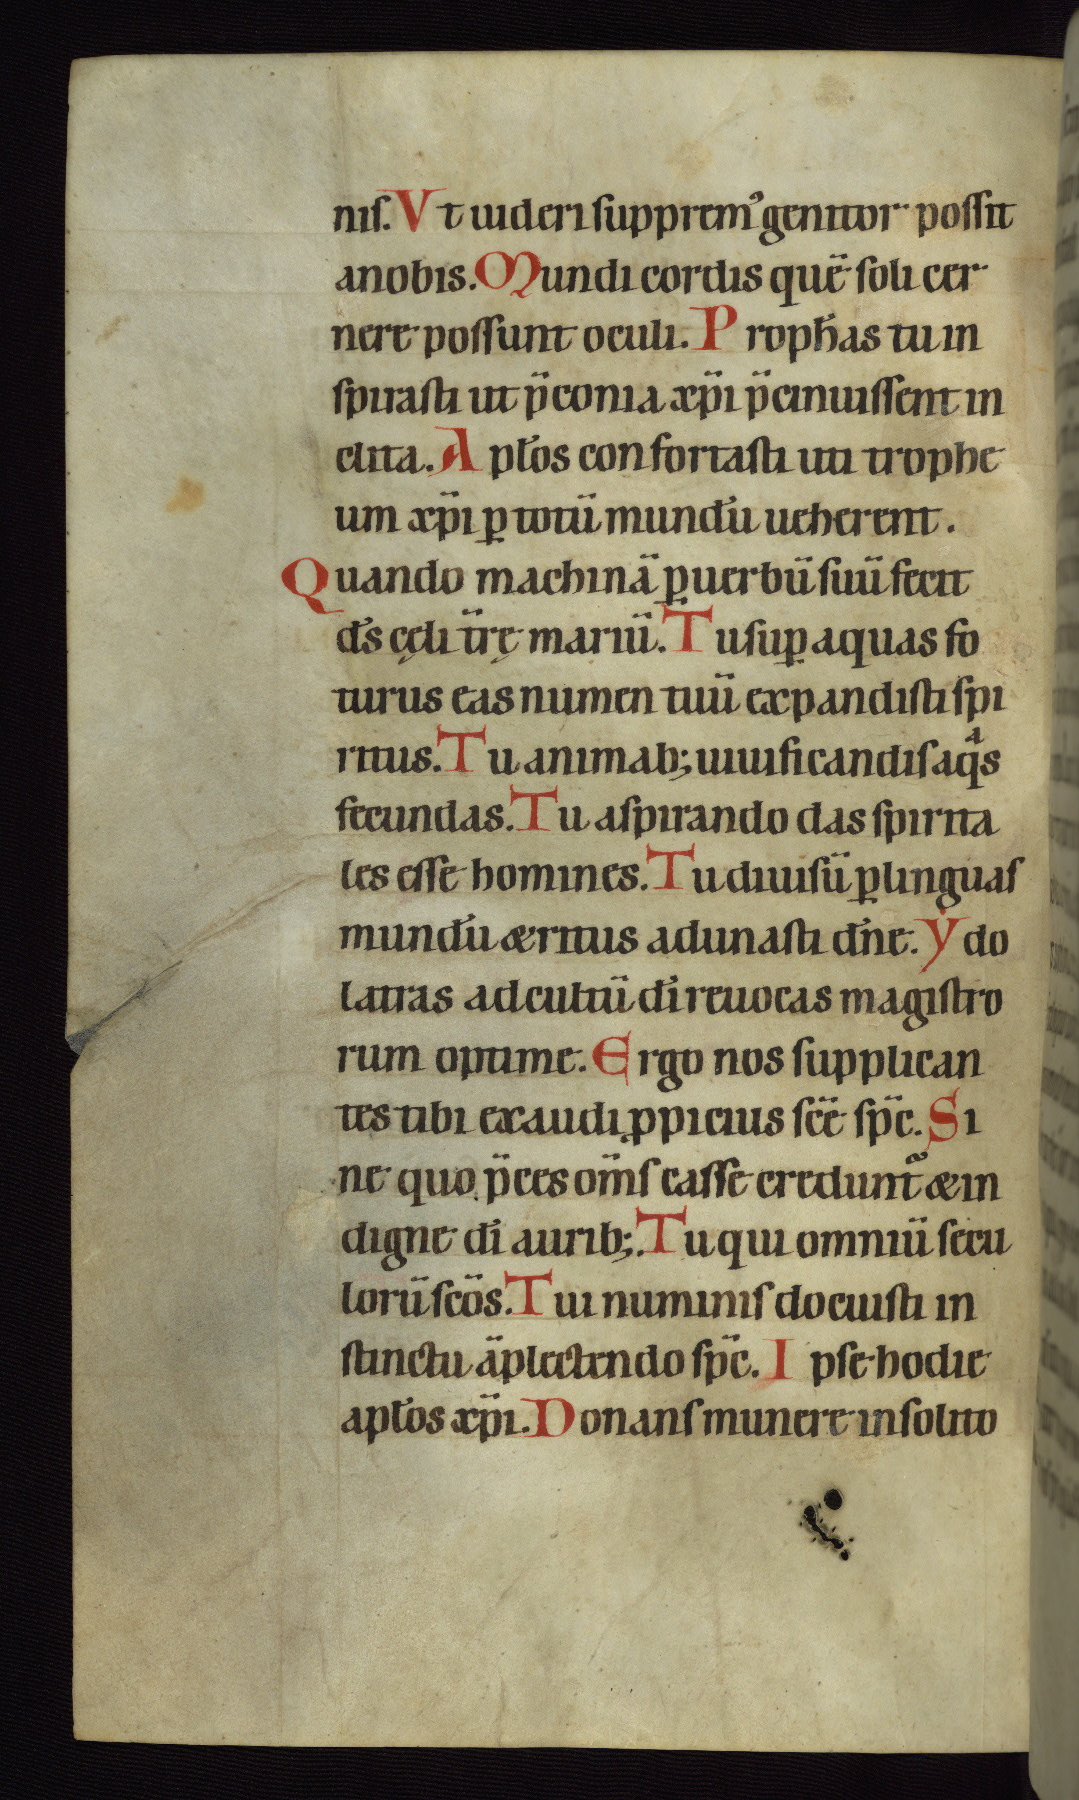 niſ. Vt uideri ſuppremꝰ genitor poſſit
a nobis. Mundi cordis quē ſoli cer
nere poſſunt oculi. Prophas tu in
ſpiraſti ut p̄conia xp̄i p̄cinuiſſent in
clita. Apƚos confortaſti uti trophe
um xp̄i ꝑ totū mundū ueherent.
Quando machinā ꝑ uerbū ſuū fecit
ds̄ cęli tr̄ę mariū. Tu ſuꝑ aquas fo
turus eas numen tuū expandiſti ſpi
ritus. Tu animab; uiuificandiſ aqͣs
fecundas. Tu aſpirando das ſpirita
les eſſe homines. Tu diuiſū ꝑ linguaſ
mundū & ritus adunaſti dn̄e. Ydo
latras ad cultū dī reuocas magiſtro
rum optime. Ergo nos ſupplican
tes tibi exaudi ꝓpicius ſcē ſpc̄. Si
ne quo p̄ces om̄ſ caſſe creduntᷣ & in
digne dī aurib;. Tu qui omniū ſecu
lorū ſcōs. Tui numiniſ docuiſti in
ſtinctu āplectendo ſpc̄. Ipſe hodie
apƚos xp̄i. Donanſ munere inſolito